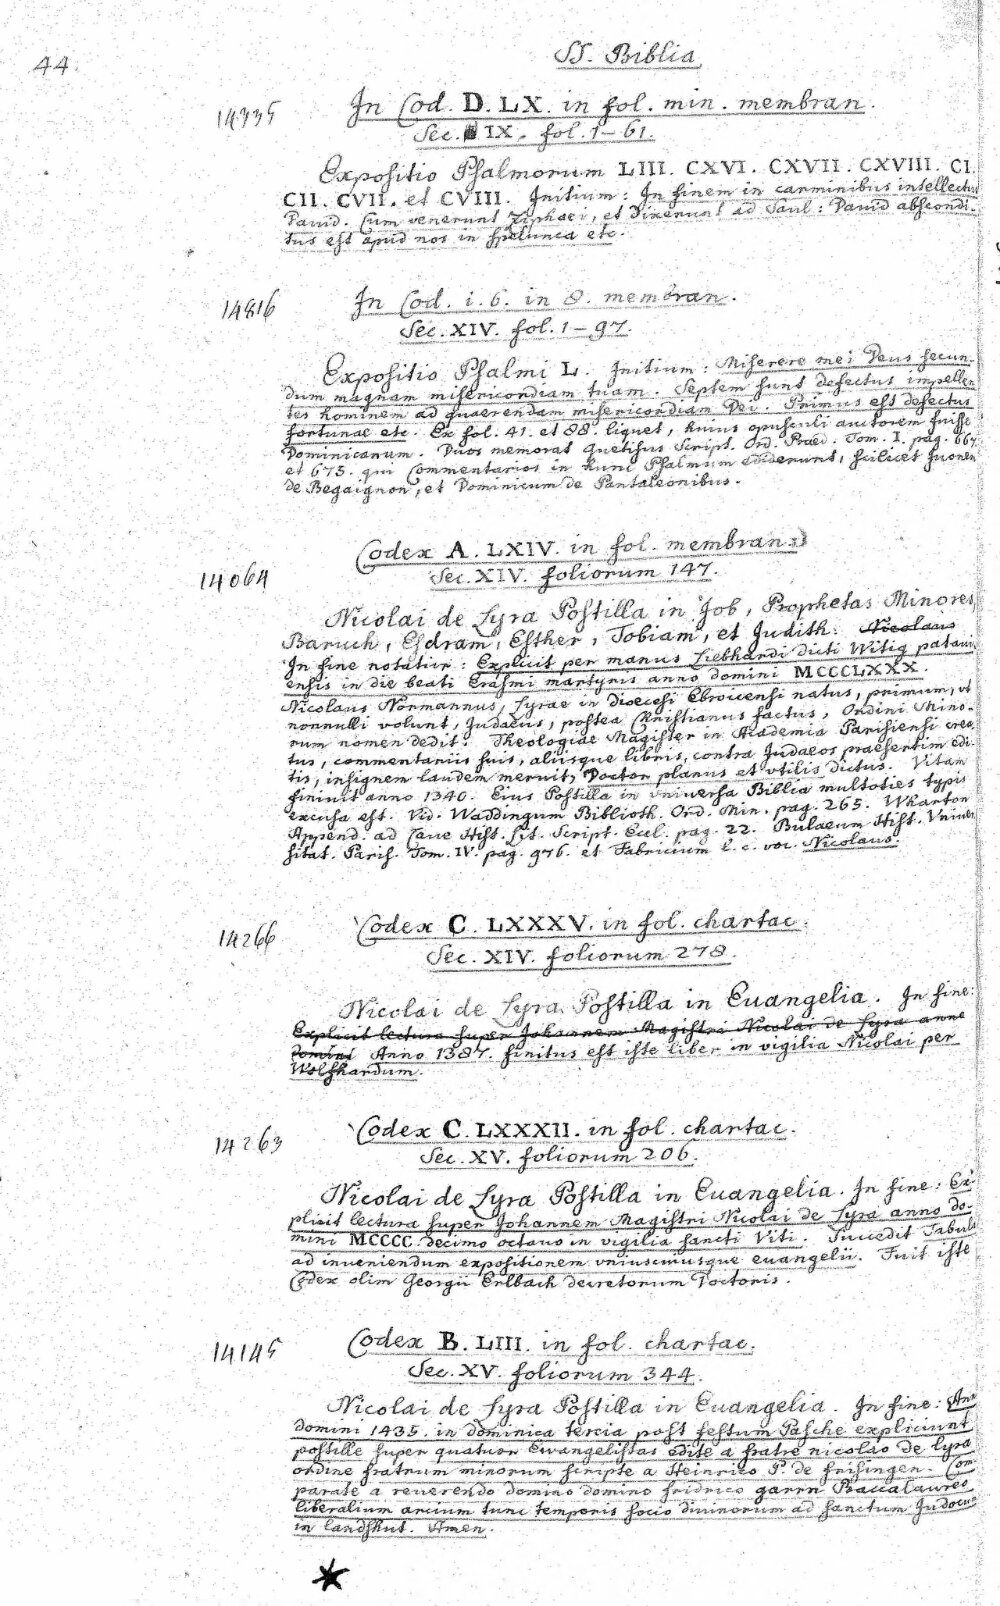 44.
SS. Biblia
14335
In Cod. D. LX. in fol. min. membran.
Sec. IX. fol. 1–61.
Expositio Psalmorum LIII. CXVI. CXVII. CXVIII. CI.
CII. CVII. et CVIII. Initium: In finem in carminibus intellectus
David. Cum venerunt Ziphaei, et dixerunt ad Saul: David abscondi-
tus est apud nos in spelunca etc.
14816
In Cod. i. 6. in 8. membran.
Sec. XIV. fol. 1–97.
Expositio Psalmi L. Initium: Miserere mei Deus secun-
dum magnam misericordiam tuam. Septem sunt defectus impellen
tes hominem ad quaerendam misericordiam Dei. Primus est defectus
fortunae etc. Ex fol. 41. et 88. liquet, huius opusculi auctorem fuisse
Dominicanum. Duos memorat Quetifus Script. Ord. Praed. Tom. I. pag. 667
et 675. qui Commentarios in hunc Psalmum ediderunt, scilicet
de Begaignon, et Dominicum de Pantaleonibus.
14064
Codex A. LXIV. in fol. membran.
Sec. XIV. foliorum 147.
Nicolai de Lyra Postilla in Job, Prophetas Minores,
Baruch, Esdram, Esther, Tobiam, et Judith. Nicolaus
In fine notatur: Explicit per manus Liebhardi dicti Witig patavi
ensis in die beati Erasmi martyris anno domini MCCCLXXX.
Nicolaus Normannus, Lyrae in Dioecesi Ebroicensi natus, primum, ut
nonnulli volunt, Judaeus, postea Christianus factus, Ordini Mino-
rum nomen dedit. Theologiae Magister in Academia Parisiensi crea
tus, commentariis suis, aliisque libris, contra Judaeos praesertim edi-
tis, insignem laudem meruit, Doctor planus et utilis dictus. Vitam
finivit anno 1340. Eius Postilla in universa Biblia multoties typis
excusa est. Vid. Waddingum Biblioth. Ord. Min. pag. 265. Wharton
Append. ad Cave Hist. Lit. Script. Eccl. pag. 22. Bulaeum Hist. Univer
sitat. Paris. Tom. IV. pag. 976. et Fabricium l. c. voc. Nicolaus.
14266
Codex C. LXXXV. in fol. chartac.
Sec. XIV. foliorum 278.
Nicolai de Lyra Postilla in Euangelia. In fine:
Explicit lectura super Johannem Magistri Nicolai de Lyra anno
domini Anno 1387. finitus est iste liber in vigilia Nicolai per
Wolfhardum.
14263
Codex C. LXXXII. in fol. chartac.
Sec. XV. foliorum 206.
Nicolai de Lyra Postilla in Euangelia. In fine: Ex-
plicit lectura super Johannem Magistri Nicolai de Lyra anno do-
mini MCCCC decimo octavo in vigilia sancti Viti. Succedit Tabula
ad inveniendum expositionem uniuscuiusque euangelii. Fuit iste
Codex olim Georgii Erlbach decretorum Doctoris.
14145
Codex B. LIII. in fol. chartac.
Sec. XV. foliorum 344.
Nicolai de Lyra Postilla in Euangelia. In fine:
domini 1435. in dominica tercia post festum Pasche expliciunt
postille super quatuor Ewangelistas edite a fratre nicolao de lyra
ordine fratrum minorum scripte a Heinrico P. de frisingen. Com
parate a reverendo domino domino fridrico garrn Baccalaureo
liberalium arcium tunc temporis socio divinorum ad sanctum Judocum
in landshut. Amen.